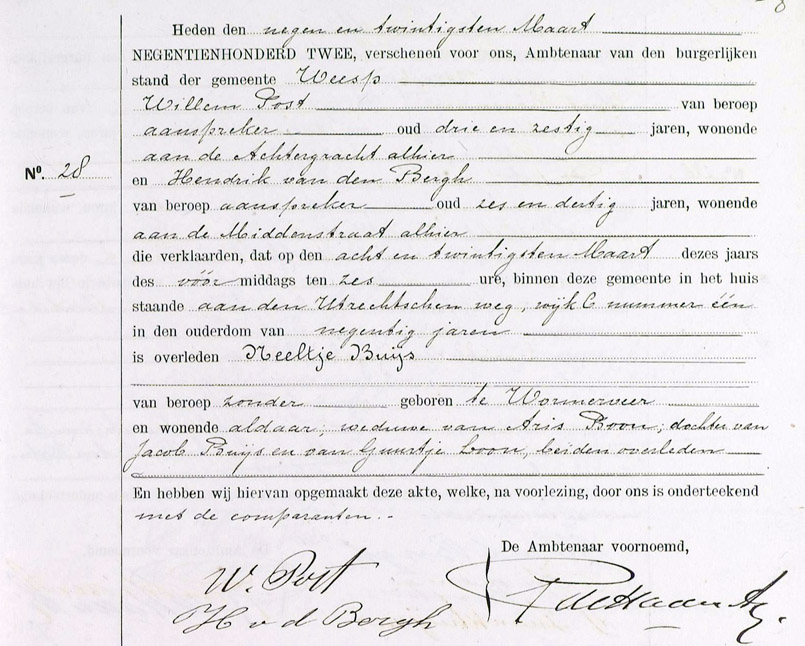 Heden den negen en twintigsten Maart
NEGENTIENHONDERD TWEE, verschenen voor ons, Ambtenaar van den burgerlijken
stand der gemeente Weesp
Willem Post van beroep
aanspreker oud drie en zestig jaren, wonende
aan de Achtergracht alhier
N°. 28
en Hendrik van den Bergh
van beroep aanspreker oud zes en dertig jaren, wonende
aan de Middenstraat alhier
die verklaarden, dat op den acht en twintigsten Maart dezes jaars
des vóór middags ten zes ure, binnen deze gemeente in het huis
staande aan den Utrechtschen weg, wijk C nummer één
in den ouderdom van negentig jaren
is overleden Neeltje Buijs
van beroep zonder geboren te Wormerveer
en wonende aldaar; weduwe van Aris Boon; dochter van
Jacob Buijs en van Guurtje Loon, beiden overleden
En hebben wij hiervan opgemaakt deze akte, welke, na voorlezing, door ons is onderteekend
met de comparanten.-
De Ambtenaar voornoemd,
W. Post
H v d Bergh
de Haan